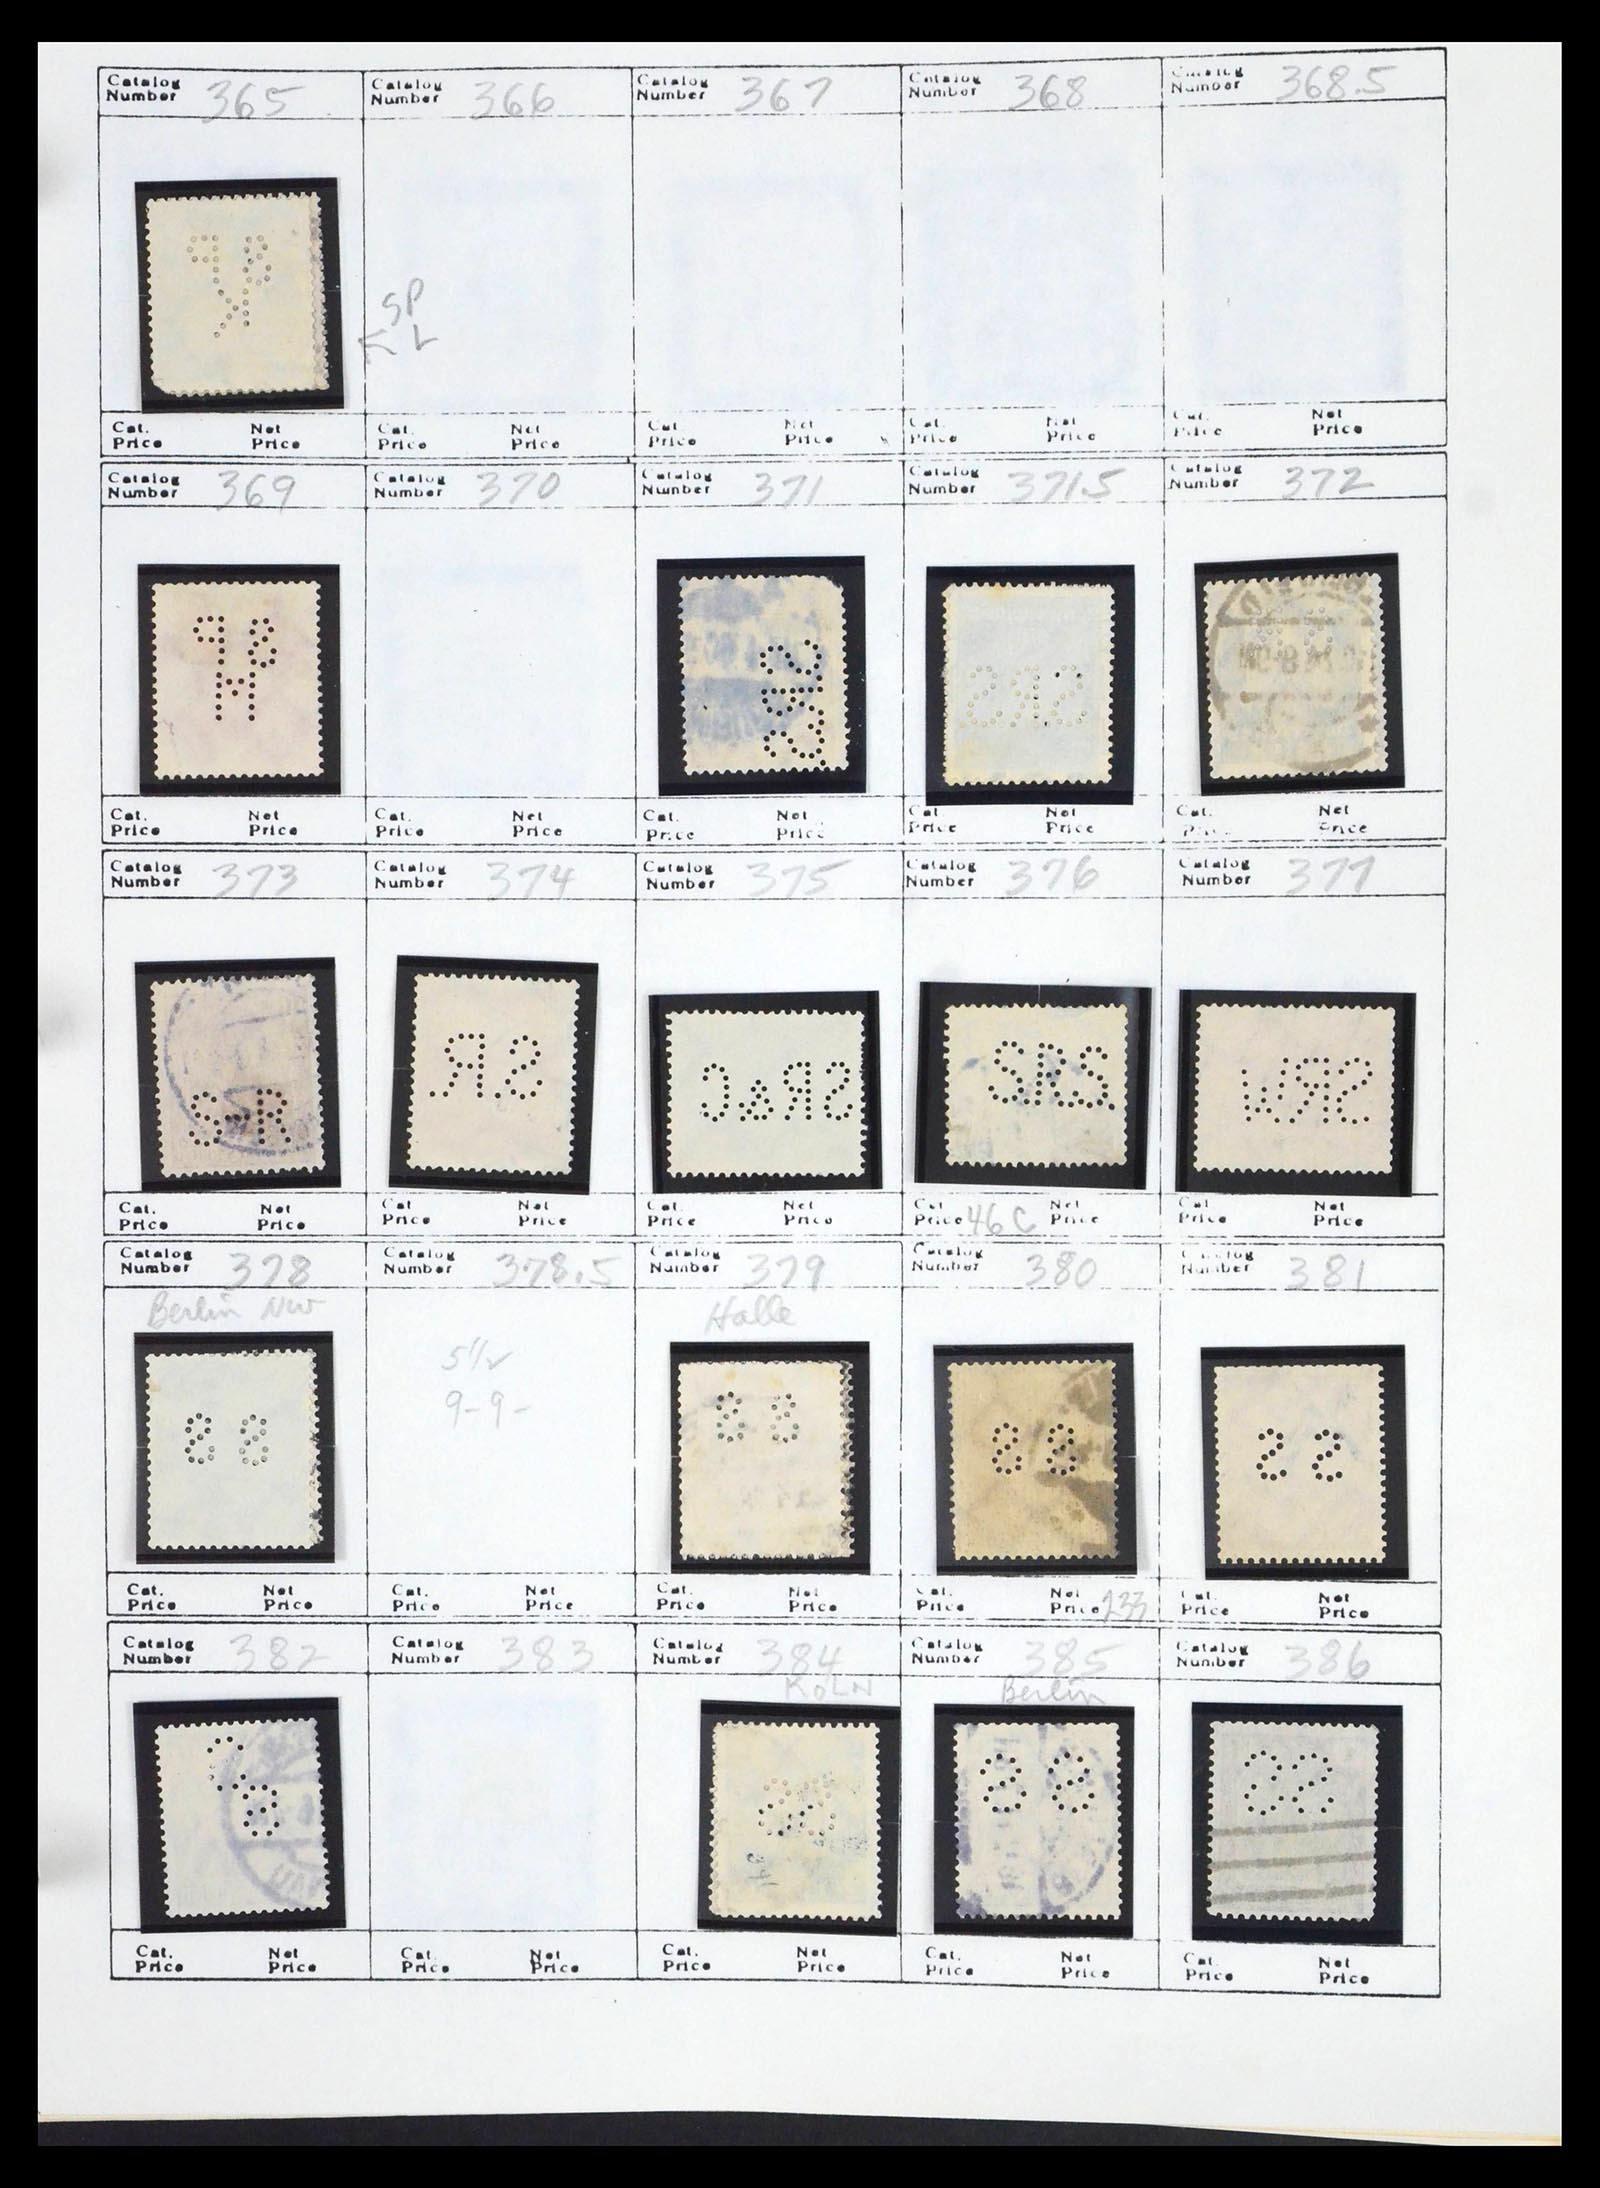 Catalog Number 365 Catalog Number 366 Catalog Number 367 Catalog Number 368 Catalog Number 368.5
SP
L
Cat. Price Net Price Cat. Price Net Price Cat. Price Net Price Cat. Price Net Price Cat. Price Net Price
Catalog Number 369 Catalog Number 370 Catalog Number 371 Catalog Number 371.5 Catalog Number 372
Cat. Price Net Price Cat. Price Net Price Cat. Price Net Price Cat. Price Net Price Cat. Price Net Price
Catalog Number 373 Catalog Number 374 Catalog Number 375 Catalog Number 376 Catalog Number 377
Cat. Price Net Price Cat Price Net Price Cat. Price Net Price Cat. Price 46 C Net Price Cat. Price Net Price
Catalog Number 378 Catalog Number 378.5 Catalog Number 379 Catalog Number 380 Catalog Number 381
Berlin NW Halle
5 1/2
9-9-
Cat. Price Net Price Cat. Price Net Price Cat. Price Net Price Cat. Price Net Price 233 Cat. Price Net Price
Catalog Number 382 Catalog Number 383 Catalog Number 384 Catalog Number 385 Catalog Number 386
KOLN Berlin
Cat. Price Net Price Cat. Price Net Price Cat. Price Net Price Cat. Price Net Price Cat. Price Net Price